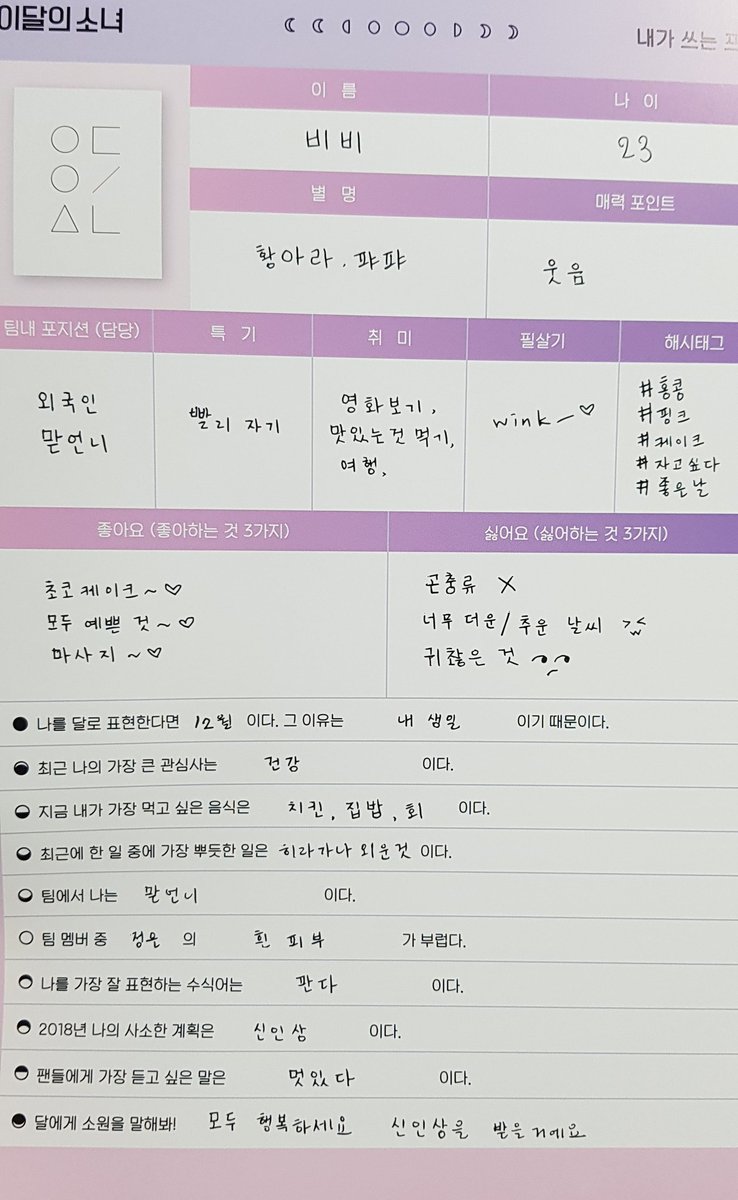 이달의 소녀
내가 쓰는
이 름
나 이
비비
23
별 명
매력 포인트
황아라. 퍄퍄
웃음
팀내 포지션 (담당)
특 기
취 미
필살기
해시태그
외국인
맏언니
빨리 자기
영화보기,
맛있는 것 먹기,
여행,
wink~♡
#홍콩
#핑크
#케이크
#자고싶다
#좋은날
좋아요 (좋아하는 것 3가지)
싫어요 (싫어하는 것 3가지)
초코케이크~♡
모두 예쁜 것~♡
마사지~♡
곤충류 X
너무 더운/추운 날씨
귀찮은 것
나를 달로 표현한다면 12월 이다. 그 이유는 내 생일 이기 때문이다.
최근 나의 가장 큰 관심사는 건강 이다.
지금 내가 가장 먹고 싶은 음식은 치킨, 집밥, 회 이다.
최근에 한 일 중에 가장 뿌듯한 일은 히라가나 외운것 이다.
팀에서 나는 맏언니 이다.
팀 멤버 중 정은 의 흰 피부 가 부럽다.
나를 가장 잘 표현하는 수식어는 판다 이다.
2018년 나의 사소한 계획은 신인상 이다.
팬들에게 가장 듣고 싶은 말은 멋있다 이다.
달에게 소원을 말해봐! 모두 행복하세요 신인상을 받을거예요